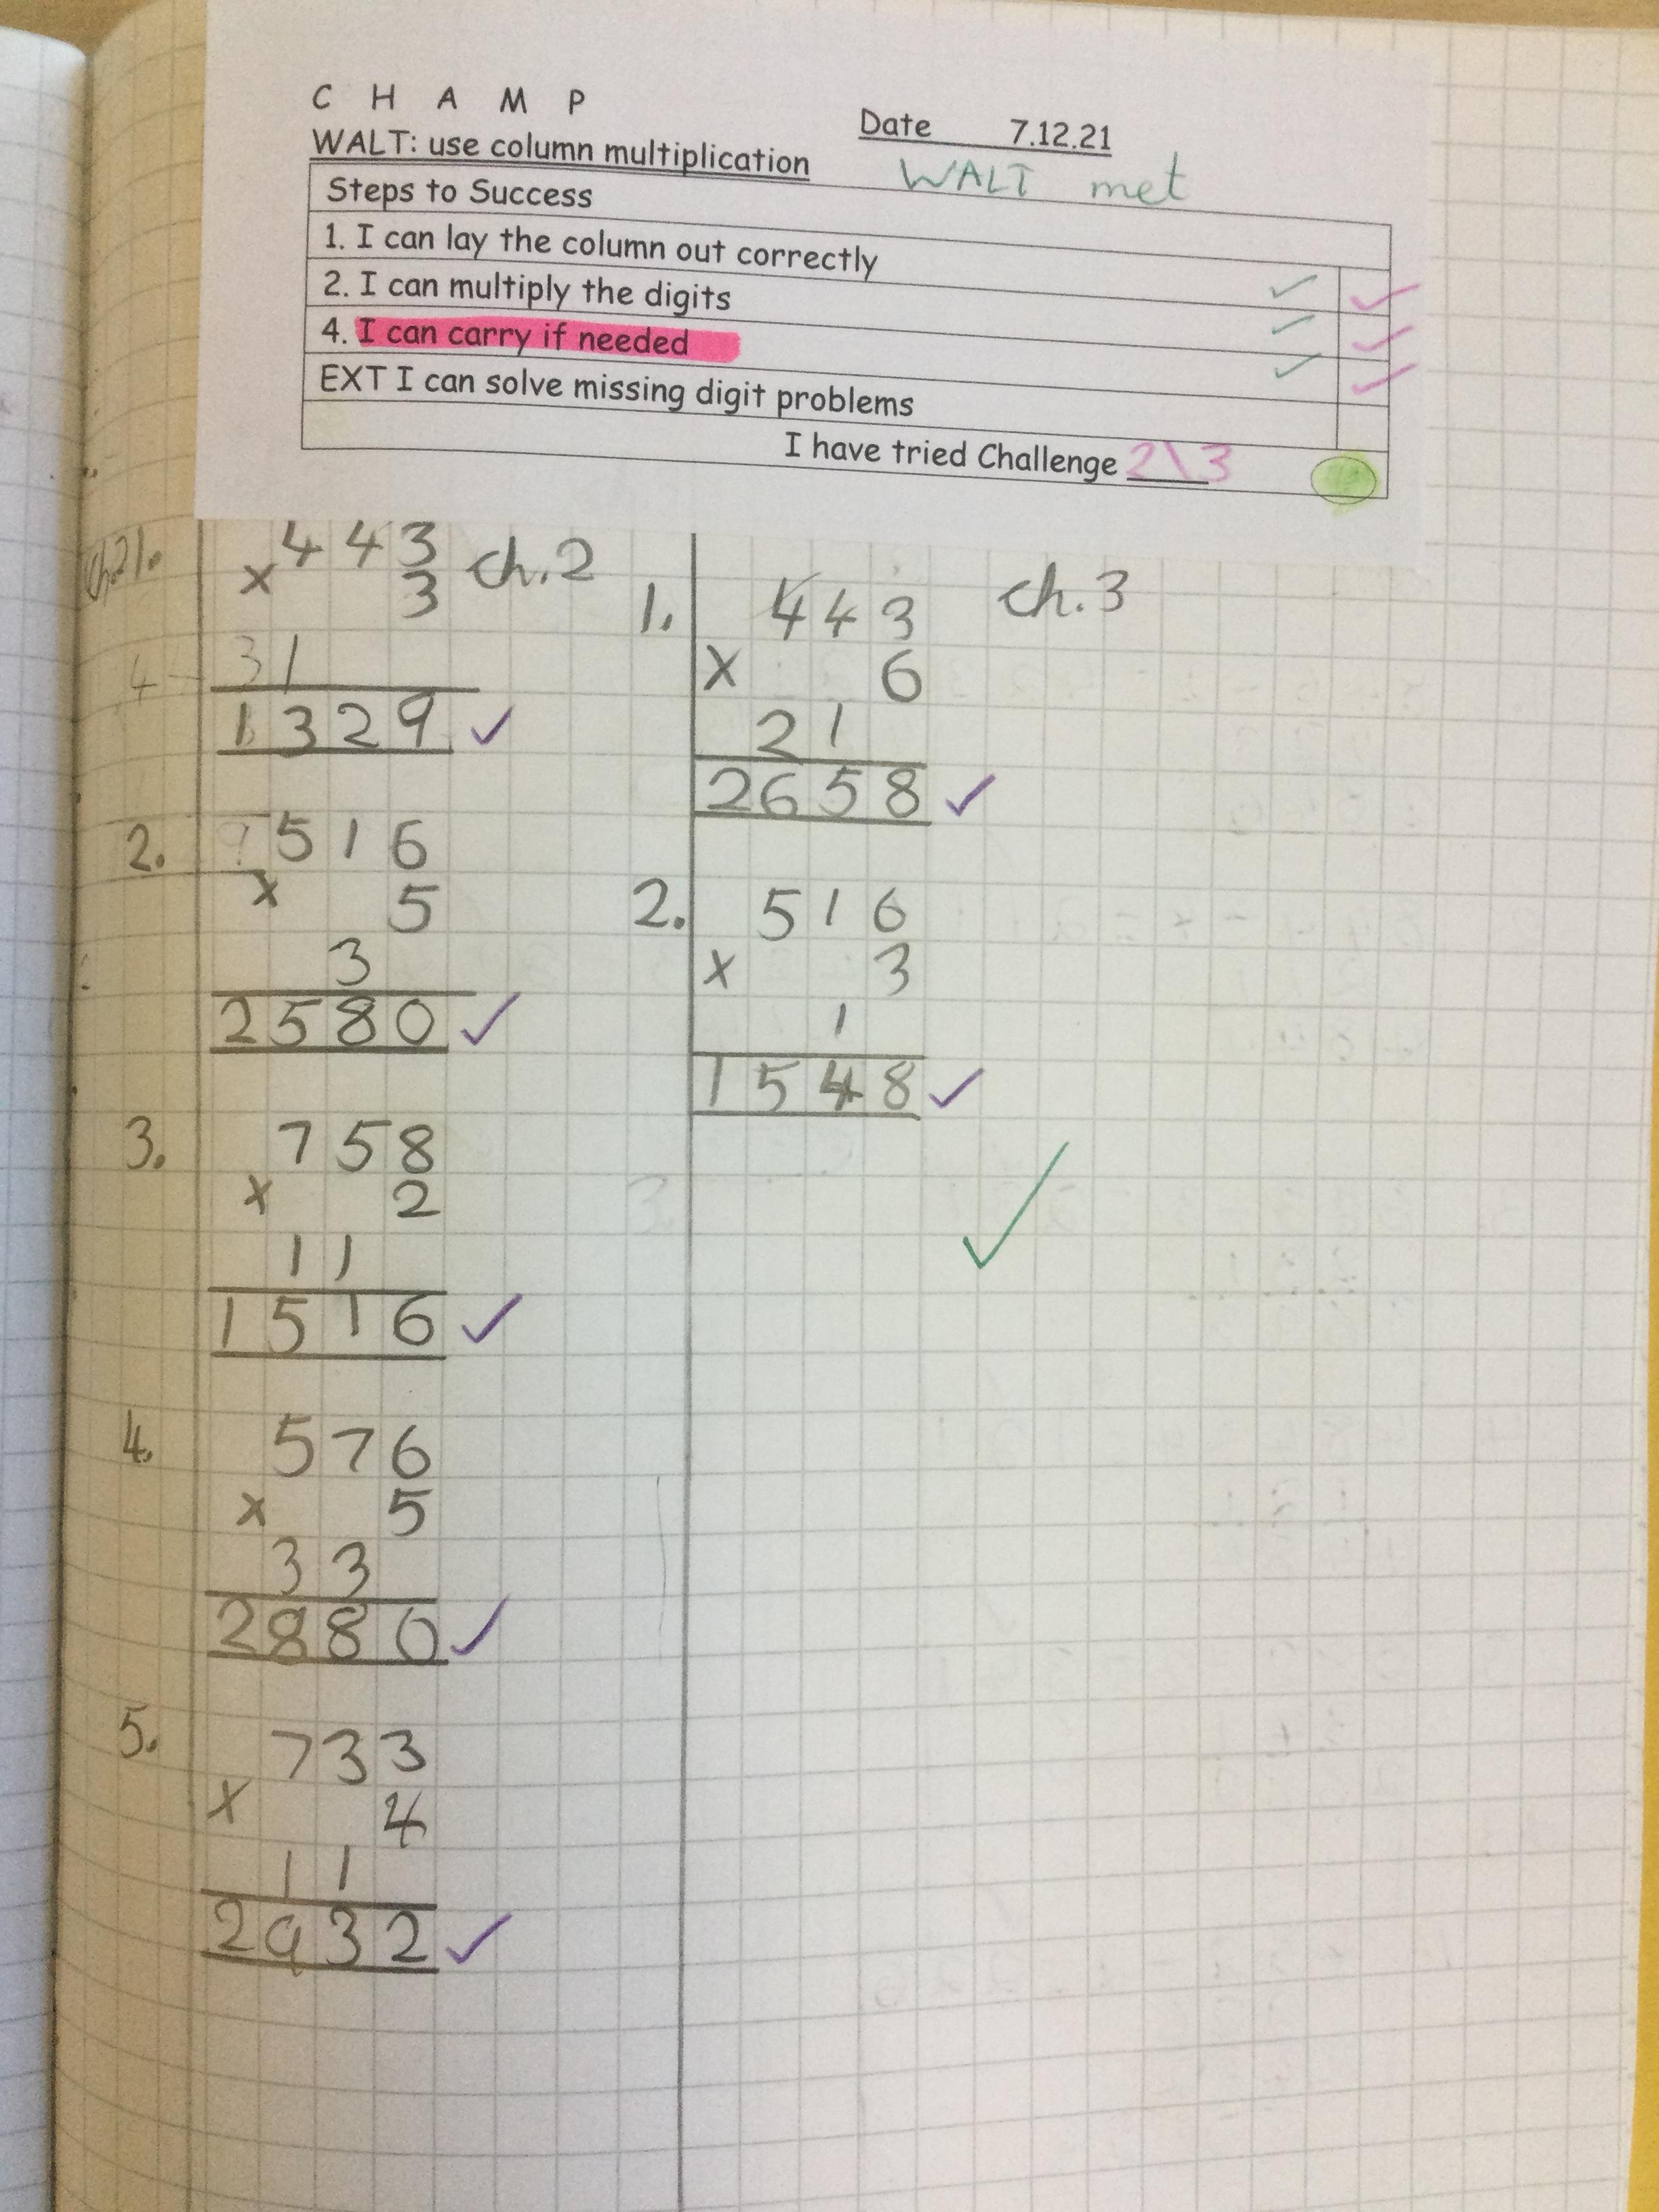 C H A M P
Date 7.12.21
WALT: use column multiplication
WALT met
Steps to Success
1. I can lay the column out correctly
2. I can multiply the digits
4. I can carry if needed
EXT I can solve missing digit problems
I have tried Challenge 2\3
443 ch.2
x 3
31
1329
2. 516
x 5
3
2580
3. 758
x 2
11
1516
4. 576
x 5
33
2880
5. 733
x 4
11
2932
1. 443 ch.3
x 6
21
2658
2. 516
x 3
1
1548